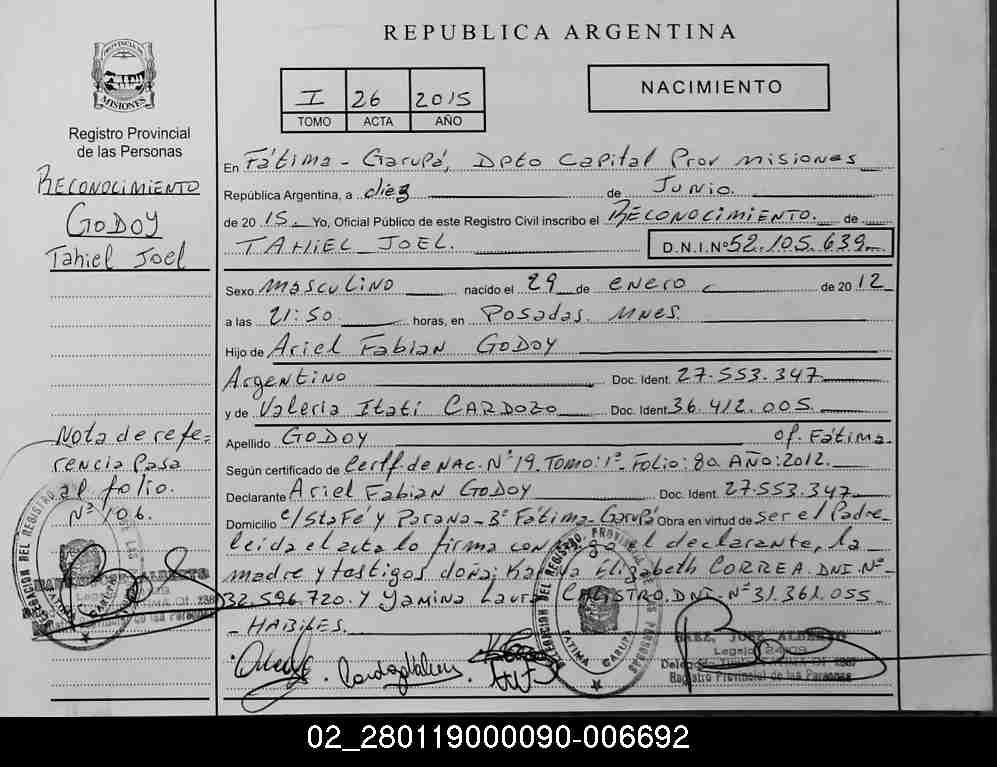 REPUBLICA ARGENTINA
PROVINCIA DE
MISIONES
Registro Provincial
de las Personas
RECONOCIMIENTO
GODOY
Tahiel Joel
Nota de refe-
rencia Pasa
al folio.
Nº 106.
I 26 2015
TOMO ACTA AÑO
NACIMIENTO
En Fátima - Garupá, Dpto Capital Prov misiones
República Argentina, a diez de Junio.
de 20 15. Yo, Oficial Público de este Registro Civil inscribo el RECONOCIMIENTO. de
TAHIEL JOEL. D.N.I.Nº 52.105.639
Sexo masculino nacido el 29 de enero de 20 12
a las 21:50 horas, en Posadas. MNES.
Hijo de Ariel Fabian GODOY
Argentino Doc. Ident. 27.553.347
y de Valeria Itatí CARDOZO Doc. Ident. 36.412.005
Apellido GODOY of. Fátima.
Según certificado de Certf. de NAC. Nº 19. Tomo: 1º Folio: 80 AÑO: 2012.
Declarante Ariel Fabian GODOY Doc. Ident. 27.553.347
Domicilio c/ Sta Fé y Parana - Bº Fátima - Garupá Obra en virtud de ser el Padre
leida el acta lo firma conmigo el declarante, la
madre y testigos doña; Elizabeth CORREA. DNI. Nº
32.596.720. Y Yamina Laura CALISTRO. DNI. Nº 31.361.055
HABILES.
DELEGACION DEL REGISTRO PROVINCIAL DE LAS PERSONAS
FATIMA GARUPA
BAEZ, JOSE ALBERTO
Legajo 2409
Registro Provincial de las Personas
02_280119000090-006692